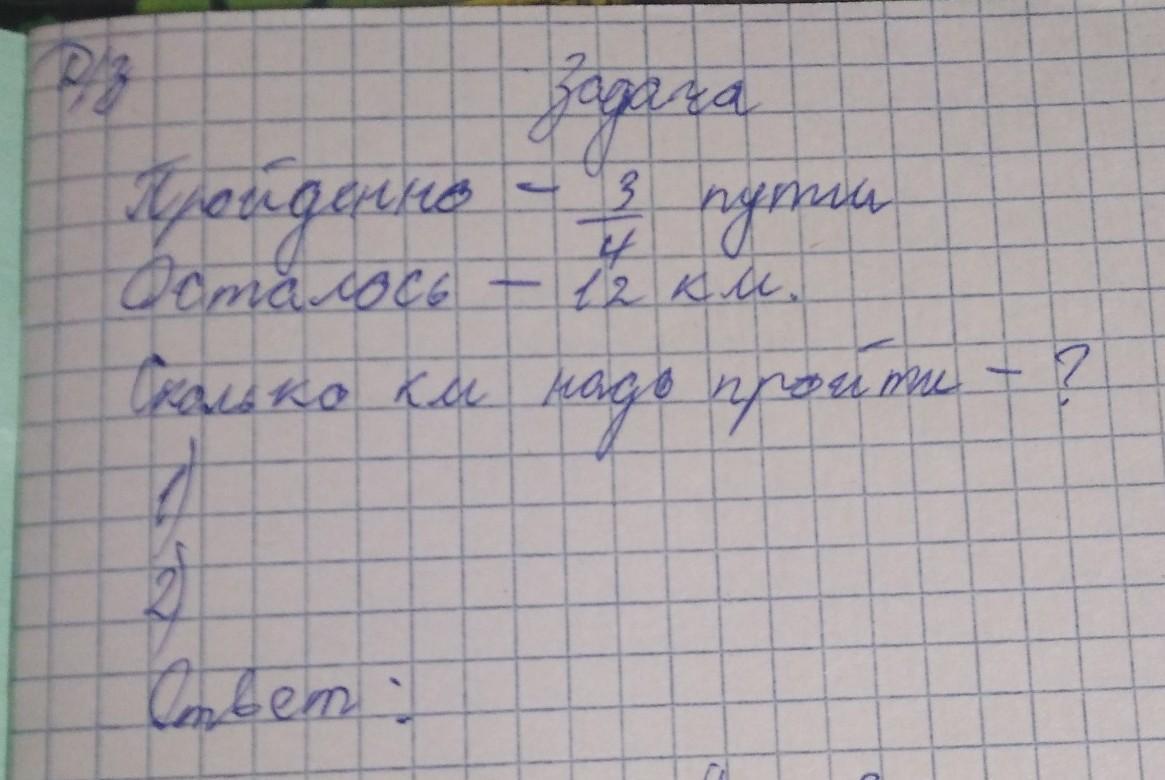 Д/з
Задача
Пройденно - 3/4 пути
Осталось - 12 км.
Сколько км надо пройти - ?
1)
2)
Ответ :